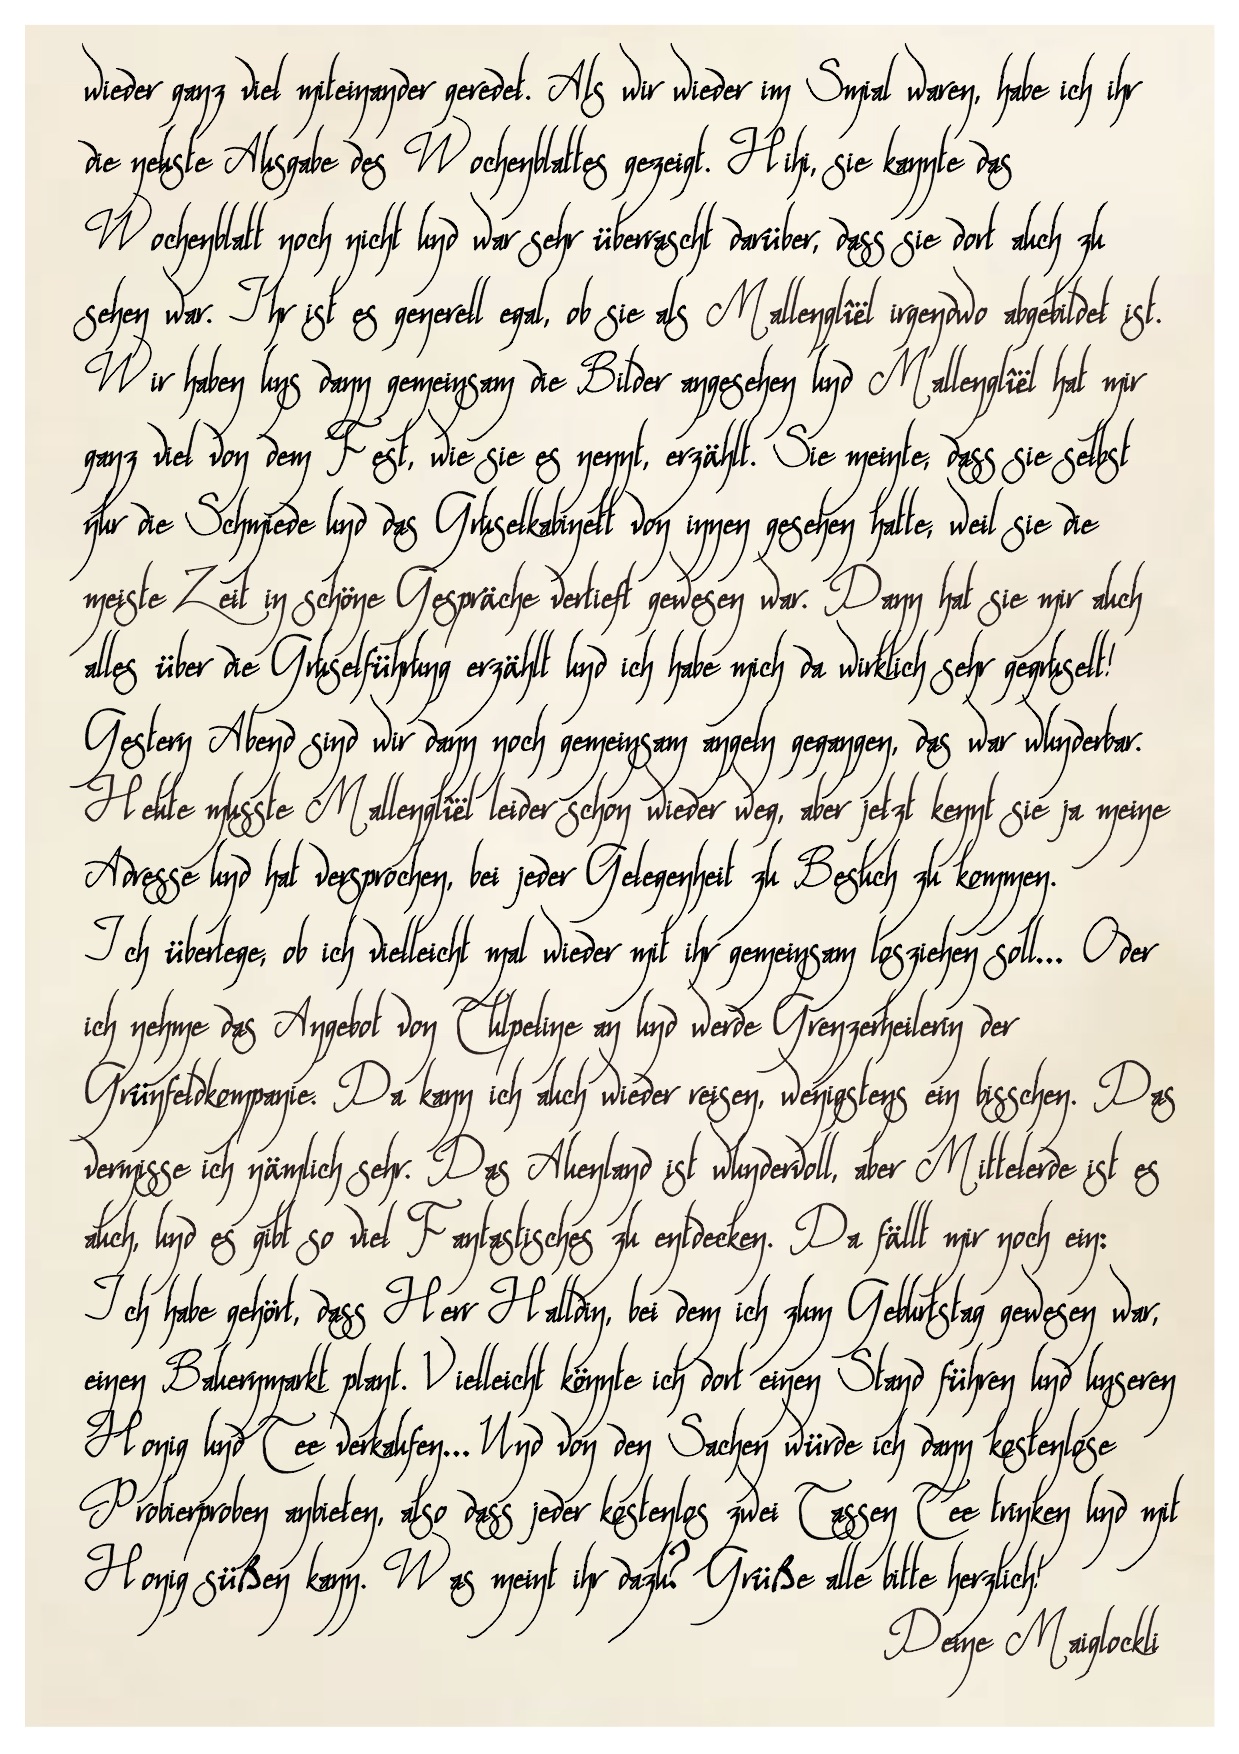 wieder ganz viel miteinander geredet. Als wir wieder im Smial waren, habe ich ihr
die neuste Ausgabe des Wochenblattes gezeigt. Hihi, sie kannte das
Wochenblatt noch nicht und war sehr überrascht darüber, dass sie dort auch zu
sehen war. Ihr ist es generell egal, ob sie als Mallenglîël irgendwo abgebildet ist.
Wir haben uns dann gemeinsam die Bilder angesehen und Mallenglîël hat mir
ganz viel von dem Fest, wie sie es nennt, erzählt. Sie meinte, dass sie selbst
nur die Schmiede und das Gruselkabinett von innen gesehen hatte, weil sie die
meiste Zeit in schöne Gespräche vertieft gewesen war. Dann hat sie mir auch
alles über die Gruselführung erzählt und ich habe mich da wirklich sehr gegruselt!
Gestern Abend sind wir dann noch gemeinsam angeln gegangen, das war wunderbar.
Heute musste Mallenglîël leider schon wieder weg, aber jetzt kennt sie ja meine
Adresse und hat versprochen, bei jeder Gelegenheit zu Besuch zu kommen.
Ich überlege, ob ich vielleicht mal wieder mit ihr gemeinsam losziehen soll... Oder
ich nehme das Angebot von Tulpeline an und werde Grenzerheilerin der
Grünfeldkompanie. Da kann ich auch wieder reisen, wenigstens ein bisschen. Das
vermisse ich nämlich sehr. Das Auenland ist wundervoll, aber Mittelerde ist es
auch, und es gibt so viel Fantastisches zu entdecken. Da fällt mir noch ein:
Ich habe gehört, dass Herr Halldin, bei dem ich zum Geburtstag gewesen war,
einen Bauernmarkt plant. Vielleicht könnte ich dort einen Stand führen und unseren
Honig und Tee verkaufen... Und von den Sachen würde ich dann kostenlose
Probierproben anbieten, also dass jeder kostenlos zwei Tassen Tee trinken und mit
Honig süßen kann. Was meint ihr dazu? Grüße alle bitte herzlich!
Deine Maiglockli